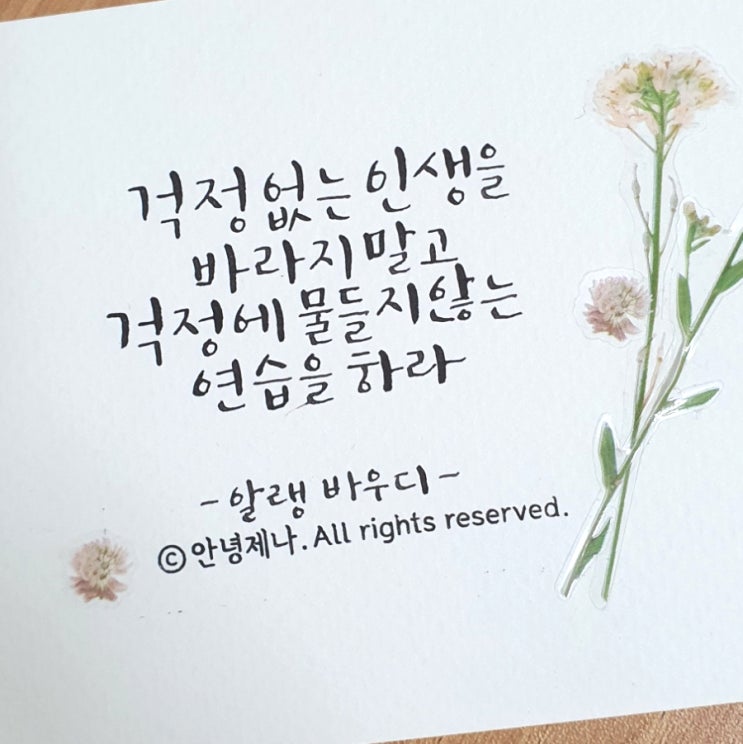 걱정없는 인생을
바라지 말고
걱정에 물들지않는
연습을 하라
-알랭 바우디-
ⓒ안녕제나. All rights reserved.